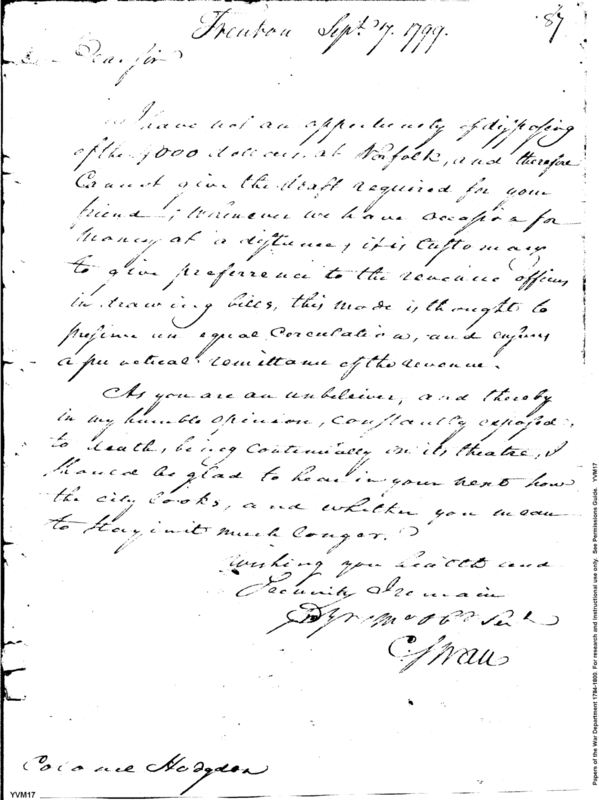 87
Trenton Sept. 17. 1799.
Dear Sir
I have not an opportunity of disposing
of the 1,000 dollars at Norfolk, and therefore
Cannot give the draft required for your
friend; whenever we have occasion for
Money at a distance, it is Customary
to give preferrence to the revenue officers
in drawing bills, this mode is thought to
preserve an equal Cerculation, and ensures
a punctual remittance of the revenue.
As you are an unbeleiver, and thereby
in my humble opinion, constantly exposed
to death, being Continually in its theatre, I
should be glad to hear in your next how
the city looks, and whether you mean
to stay in it much longer.
Wishing you health and
Security I remain
Dr Sir Yr Mo Ob Servt
C Swan
Colonel Hodgdon
YVM17
Papers of the War Department 1784-1800. For research and instructional use only. See Permissions Guide. YVM17